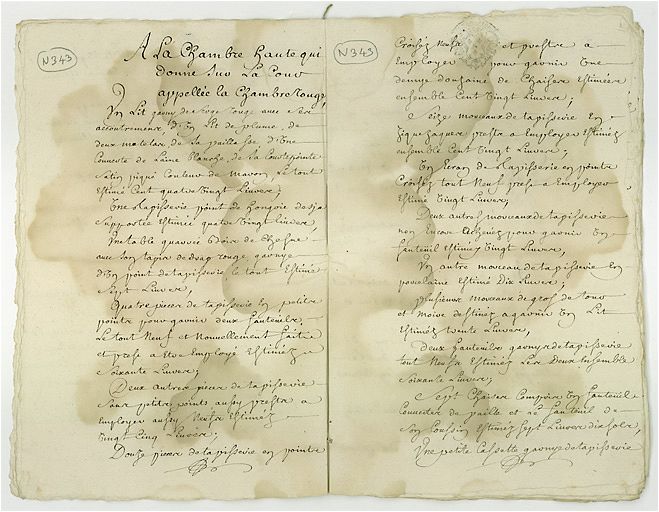 N343
A La Chambre haute qui
donne sur La Cour
appellée la Chambre rouge
Un Lit garny de serge rouge avec ses
accoutrements, d'Un Lit de plume, de
deux matelas de La paillasse, d'Une
Couverte de Laine blanche, de la Courtepointe
Satin piqué Couleur de Maron Le tout
Estimé Cent quatre Vingt Livres;
Une Tapisserie point de hongrie desja
Supportée Estimée quatre Vingt Livres,
Une table quarrée de bois de Chesne
avec son tapis de drap rouge, garnye
d'Un point de tapisserie le tout Estimé
Sept Livres,
Quatre pieces de tapisserie En petits
points pour garnir deux fauteuils,
Le tout Neuf et Nouvellement faitte
et preste a Etre Employé Estimez
Soixante Livres;
Deux autres pieces de tapisserie
Sans petits points aussy prestes a
Employer aussy Neufs Estimez
Vingt Cinq Livres;
Douze pieces de tapisserie en points
N343
Croisez Neufs et prestes a
Employer pour garnir Une
demye douzaine de Chaises Estimées
ensemble Cent Vingt Livres;
Seize morceaux de tapisserie En
preste a Employer Estimez
ensemble Cent Vingt Livres;
Un Ecran de Tapisserie en points
Croisez tout Neuf preste a Employer
Estimé Vingt Livres;
Deux autres morceaux de tapisserie
non Encore achevez pour garnir Un
fauteuil Estimez Vingt Livres,
Un autre morceau de tapisserie En
porcelaine Estimé Dix Livres;
plusieurs morceaux de gros de tour
et Moire destinez a garnir Un Lit
Estimez trente Livres,
deux fauteuils garnys de tapisserie
tout Neufs Estimez Les Deux Ensemble
Soixante Livres;
Sept Chaises Un fauteuil
Couvertes de paille et Le fauteuil de
Son Coussin Estimez Sept Livres dix sols,
Une petite Cassette garnye de tapisserie